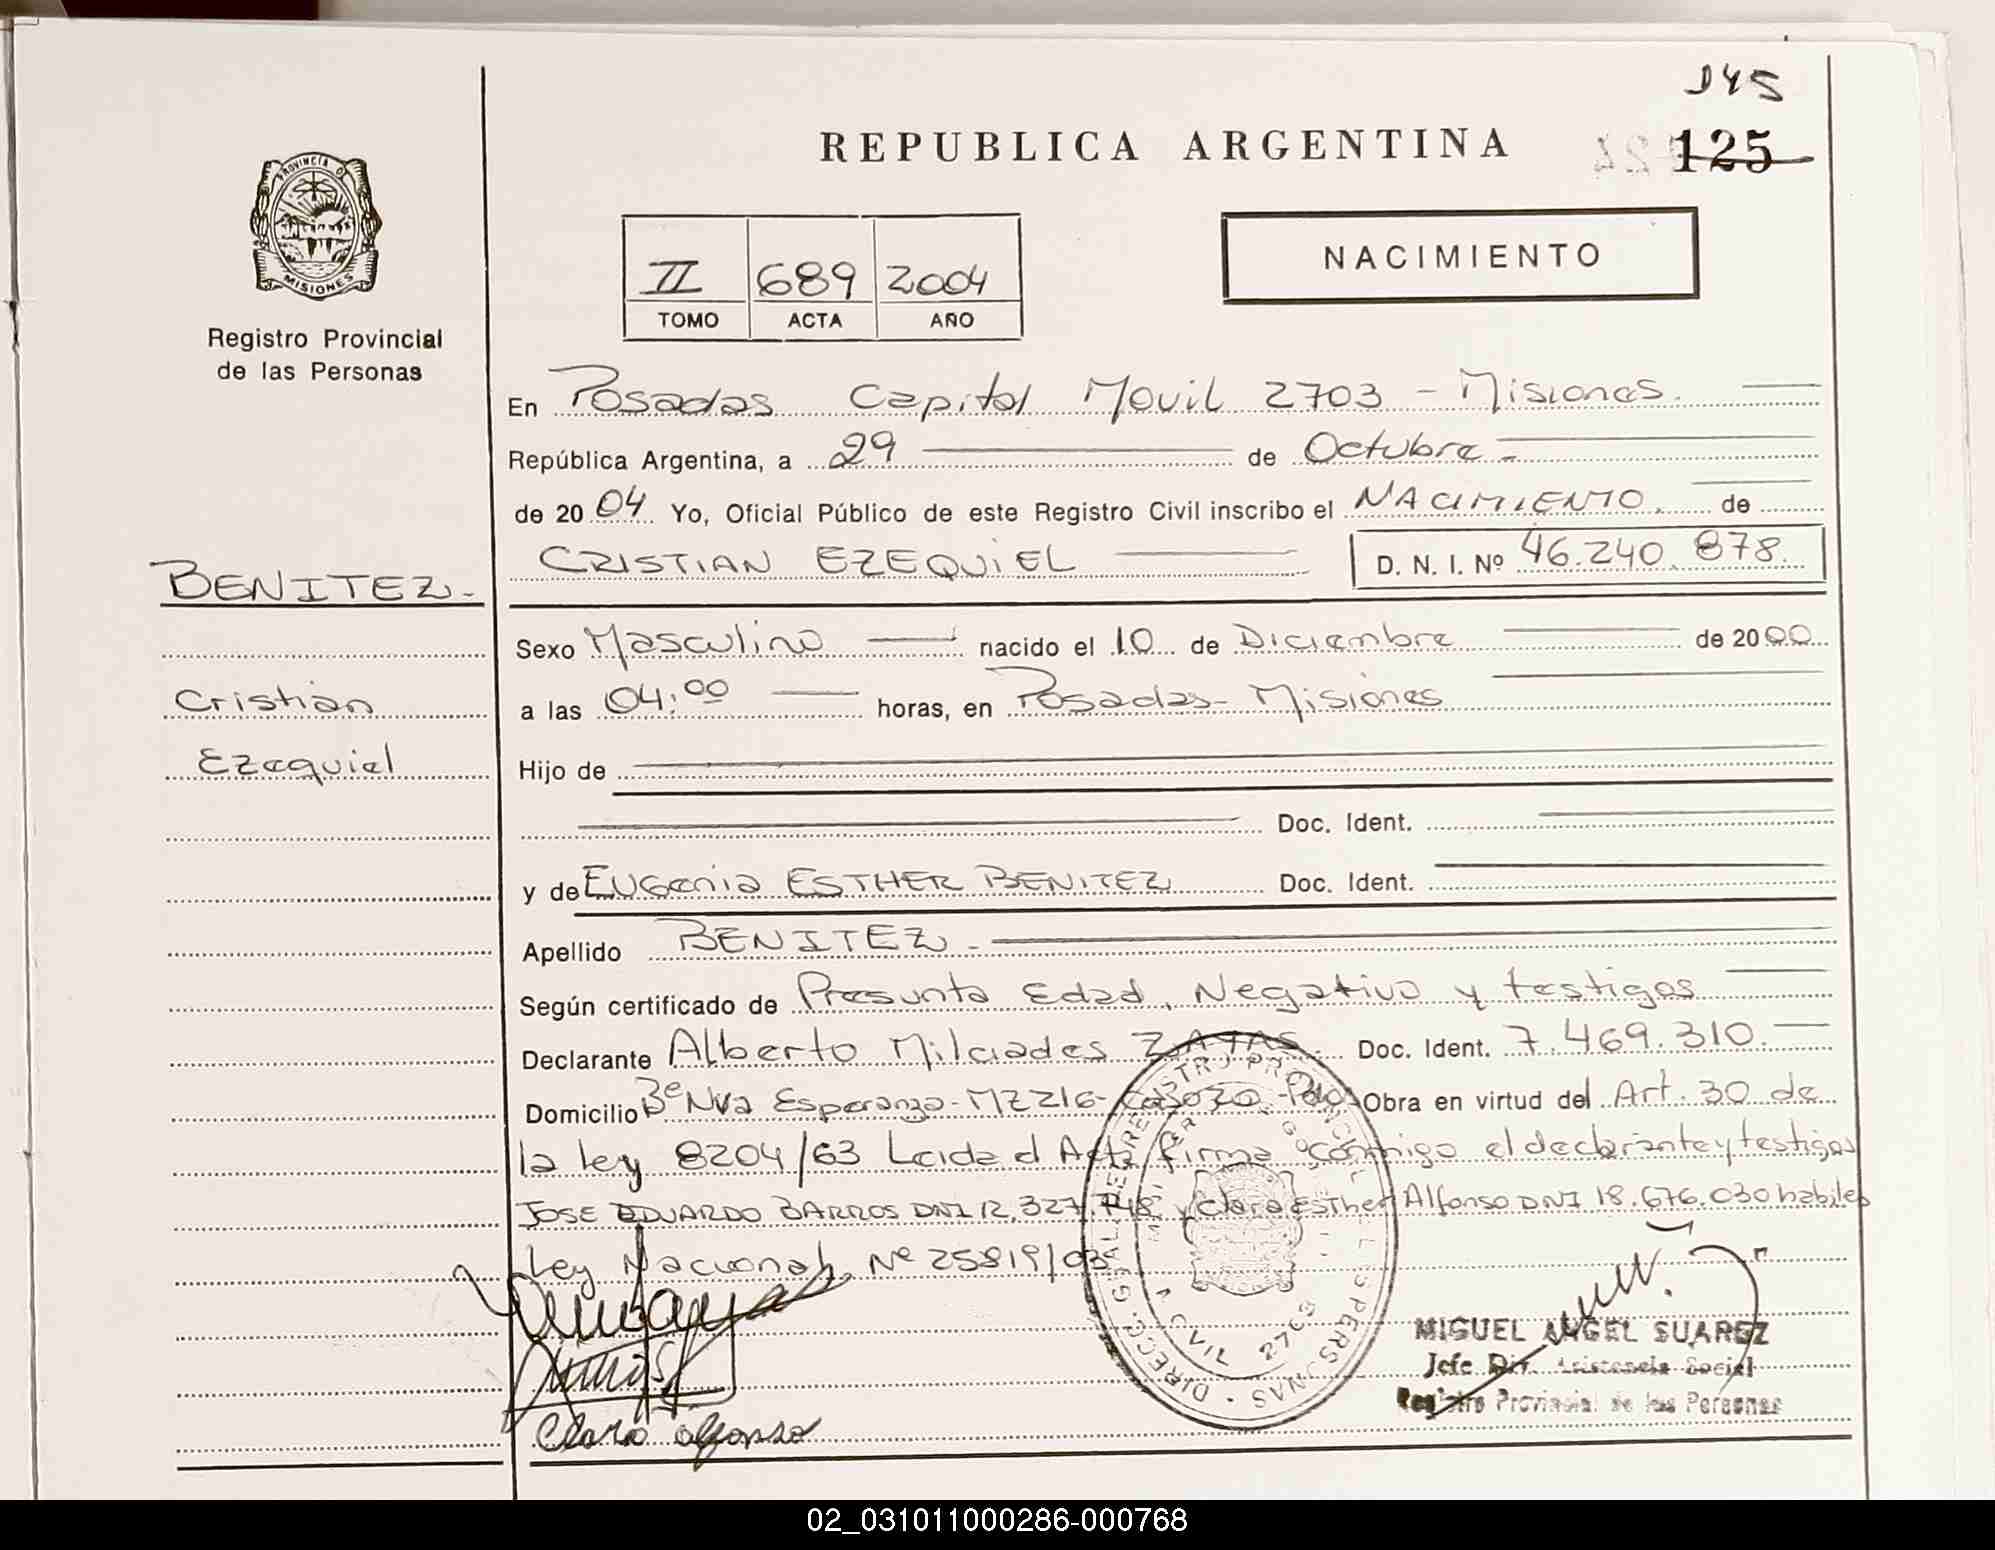 145
REPUBLICA ARGENTINA
125
PROVINCIA DE
MISIONES
Registro Provincial
de las Personas
II 689 2004
TOMO ACTA AÑO
NACIMIENTO
En Posadas Capital Movil 2703 - Misiones.
República Argentina, a 29 de Octubre -
de 20 04 Yo, Oficial Público de este Registro Civil inscribo el NACIMIENTO. de
CRISTIAN EZEQUIEL D. N. I. Nº 46.240.878.
BENITEZ.-
Sexo Masculino nacido el 10 de Diciembre de 2000
Cristian
a las 04:00 horas, en Posadas - Misiones
Ezequiel
Hijo de
Doc. Ident.
y de Eugenia ESTHER BENITEZ Doc. Ident.
Apellido BENITEZ.-
Según certificado de Presunta Edad, Negativo y testigos
Declarante Alberto Milciades ZAYAS. Doc. Ident. 7.469.310.
Domicilio Bº Nva Esperanza - MZ 216 - Casa 30 - Pdas Obra en virtud del Art. 30 de
la ley 8204/63 Leida el Acta firma conmigo el declarante y testigos
JOSE EDUARDO BARROS DNI 12.327.748 y Clara Esther Alfonso DNI 18.676.030 habiles
Ley Nacional Nº 25819/03
MIGUEL ANGEL SUAREZ
Jefe Dir. Asistencia Social
Registro Provincial de las Personas
Clara Alfonso
02_031011000286-000768